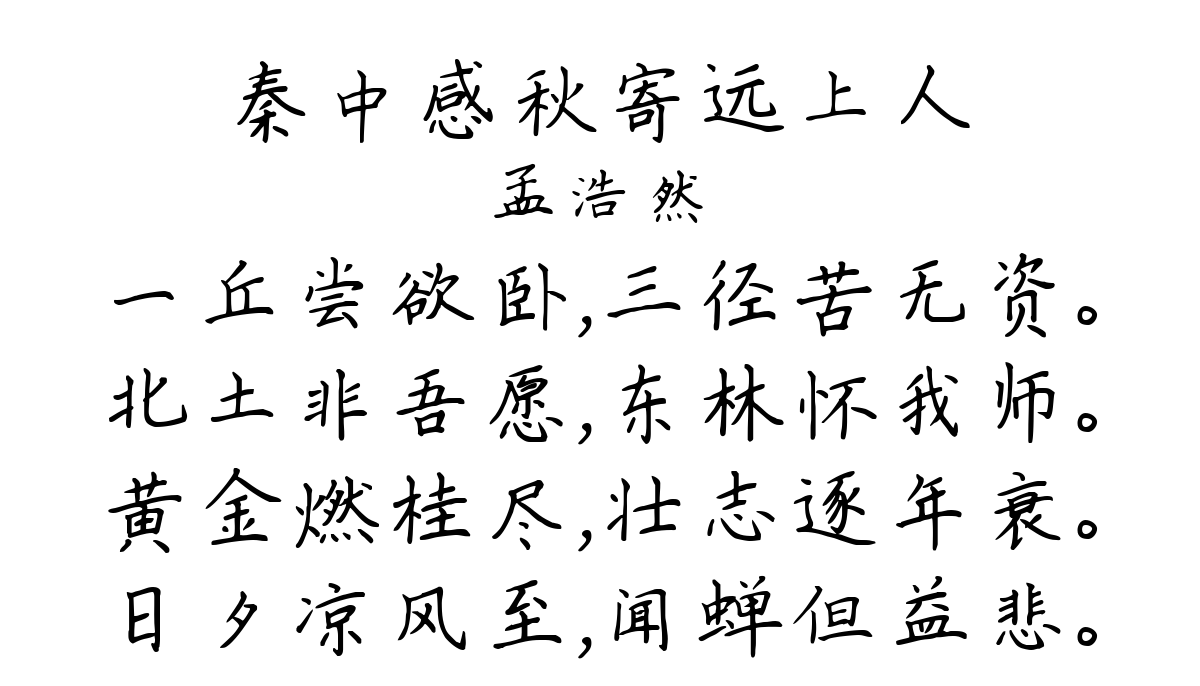 秦中感秋寄远上人
孟浩然
一丘尝欲卧,三径苦无资。
北土非吾愿,东林怀我师。
黄金燃桂尽,壮志逐年衰。
日夕凉风至,闻蝉但益悲。